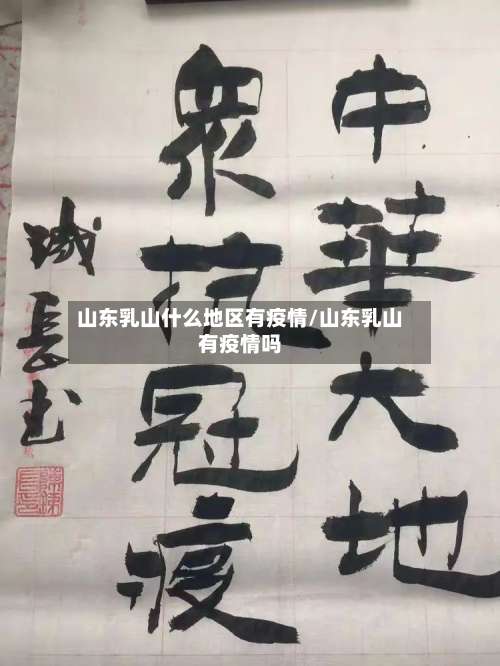 中華大地
衆抗冠疫
城長书
山东乳山什么地区有疫情/山东乳山
有疫情吗